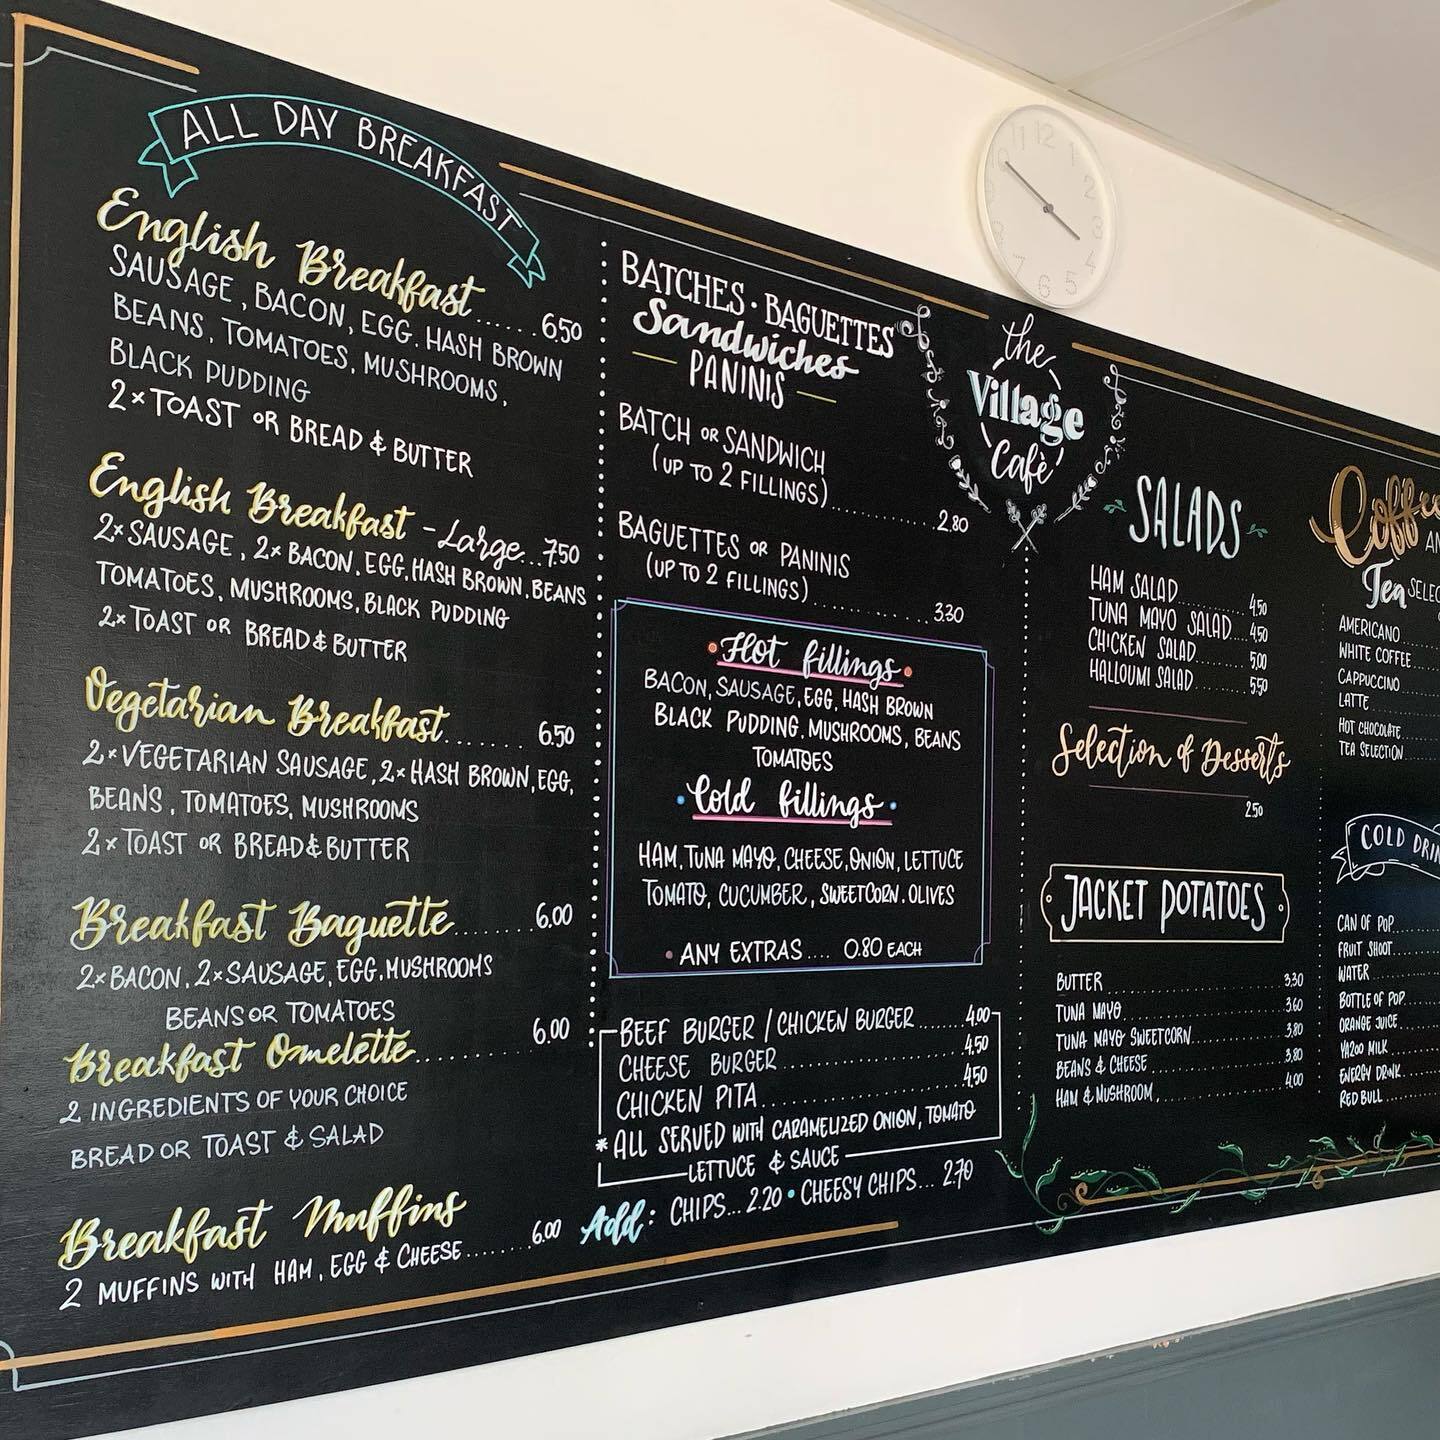 ALL DAY BREAKFAST
English Breakfast......6.50
SAUSAGE, BACON, EGG. HASH BROWN
BEANS, TOMATOES, MUSHROOMS,
BLACK PUDDING
2×TOAST OR BREAD & BUTTER
English Breakfast - Large...7.50
2×SAUSAGE, 2×BACON, EGG, HASH BROWN, BEANS
TOMATOES, MUSHROOMS, BLACK PUDDING
2×TOAST OR BREAD & BUTTER
Vegetarian Breakfast....... 6.50
2×VEGETARIAN SAUSAGE, 2×HASH BROWN, EGG,
BEANS, TOMATOES, MUSHROOMS
2×TOAST OR BREAD & BUTTER
Breakfast Baguette....... 6.00
2×BACON, 2×SAUSAGE, EGG, MUSHROOMS
BEANS OR TOMATOES
Breakfast Omelette......... 6.00
2 INGREDIENTS OF YOUR CHOICE
BREAD OR TOAST & SALAD
Breakfast Muffins
2 MUFFINS WITH HAM, EGG & CHEESE.......6.00
BATCHES · BAGUETTES
Sandwiches
PANINIS
BATCH OR SANDWICH
(UP TO 2 FILLINGS)............2.80
BAGUETTES OR PANINIS
(UP TO 2 FILLINGS)............3.30
Hot fillings
BACON, SAUSAGE, EGG, HASH BROWN
BLACK PUDDING, MUSHROOMS, BEANS
TOMATOES
Cold fillings
HAM, TUNA MAYO, CHEESE, ONION, LETTUCE
TOMATO, CUCUMBER, SWEETCORN, OLIVES
• ANY EXTRAS.... 0.80 EACH
BEEF BURGER / CHICKEN BURGER.......4.00
CHEESE BURGER...................4.50
CHICKEN PITA...................4.50
*ALL SERVED WITH CARAMELIZED ONION, TOMATO
LETTUCE & SAUCE
Add: CHIPS...2.20 • CHEESY CHIPS...2.70
the
Village
Cafè
SALADS
HAM SALAD..........4.50
TUNA MAYO SALAD....4.50
CHICKEN SALAD.......5.00
HALLOUMI SALAD.......5.50
Selection of Desserts
2.50
JACKET POTATOES
BUTTER..................3.30
TUNA MAYO..................3.60
TUNA MAYO SWEETCORN..........3.80
BEANS & CHEESE..............3.80
HAM & MUSHROOM..............4.00
Coffee
AN
Tea SELEC
AMERICANO
WHITE COFFEE
CAPPUCCINO
LATTE
HOT CHOCOLATE
TEA SELECTION
COLD DRIN
CAN OF POP
FRUIT SHOOT
WATER
BOTTLE OF POP
ORANGE JUICE
YAZOO MILK
ENERGY DRINK
RED BULL
11 12 1
10 2
3
4
7 6 5